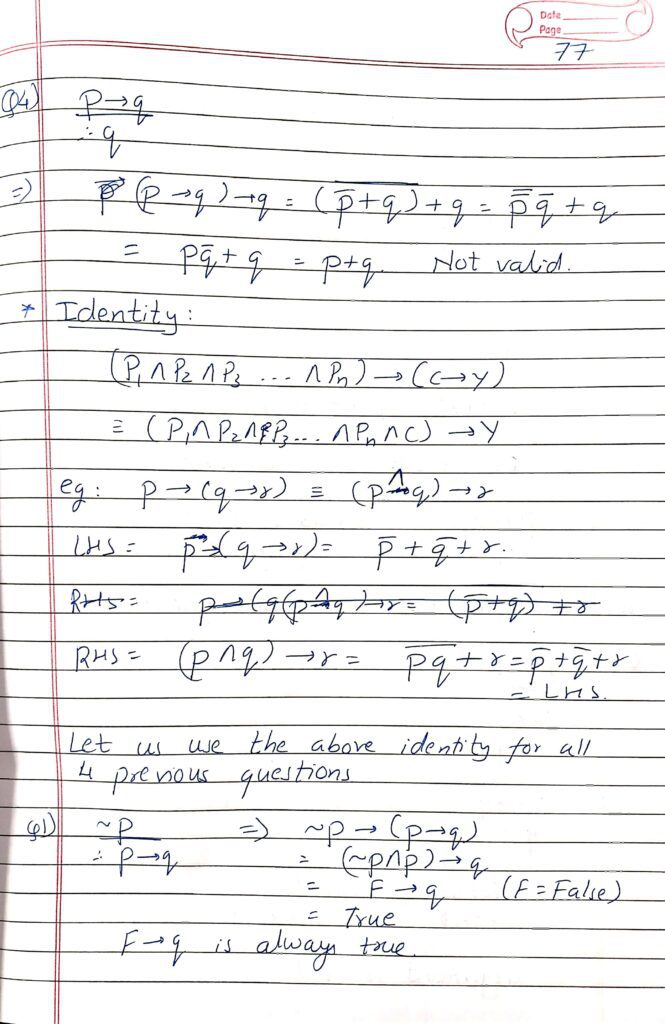 Date
Page
77
Q4) p→q
∴ q
⇒) (p→q)→q = \overline{(p̄+q)} + q = p̿ q̄ + q
= pq̄ + q = p+q. Not valid.
* Identity :
(P₁ ∧ P₂ ∧ P₃ ... ∧ Pₙ) → (C→Y)
≡ (P₁∧ P₂∧P₃... ∧Pₙ ∧C) →Y
eg: p → (q→r) ≡ (p∧q)→r
LHS = p→(q→r)= p̄ + q̄ + r.
RHS = (p∧q)→r = \overline{pq} + r = p̄ + q̄ + r
= LHS.
Let us use the above identity for all
4 previous questions
Q1) ~p ⇒ ~p → (p→q)
∴ p→q = (~p∧p)→q
= F→q (F = False)
= True
F→q is always true.